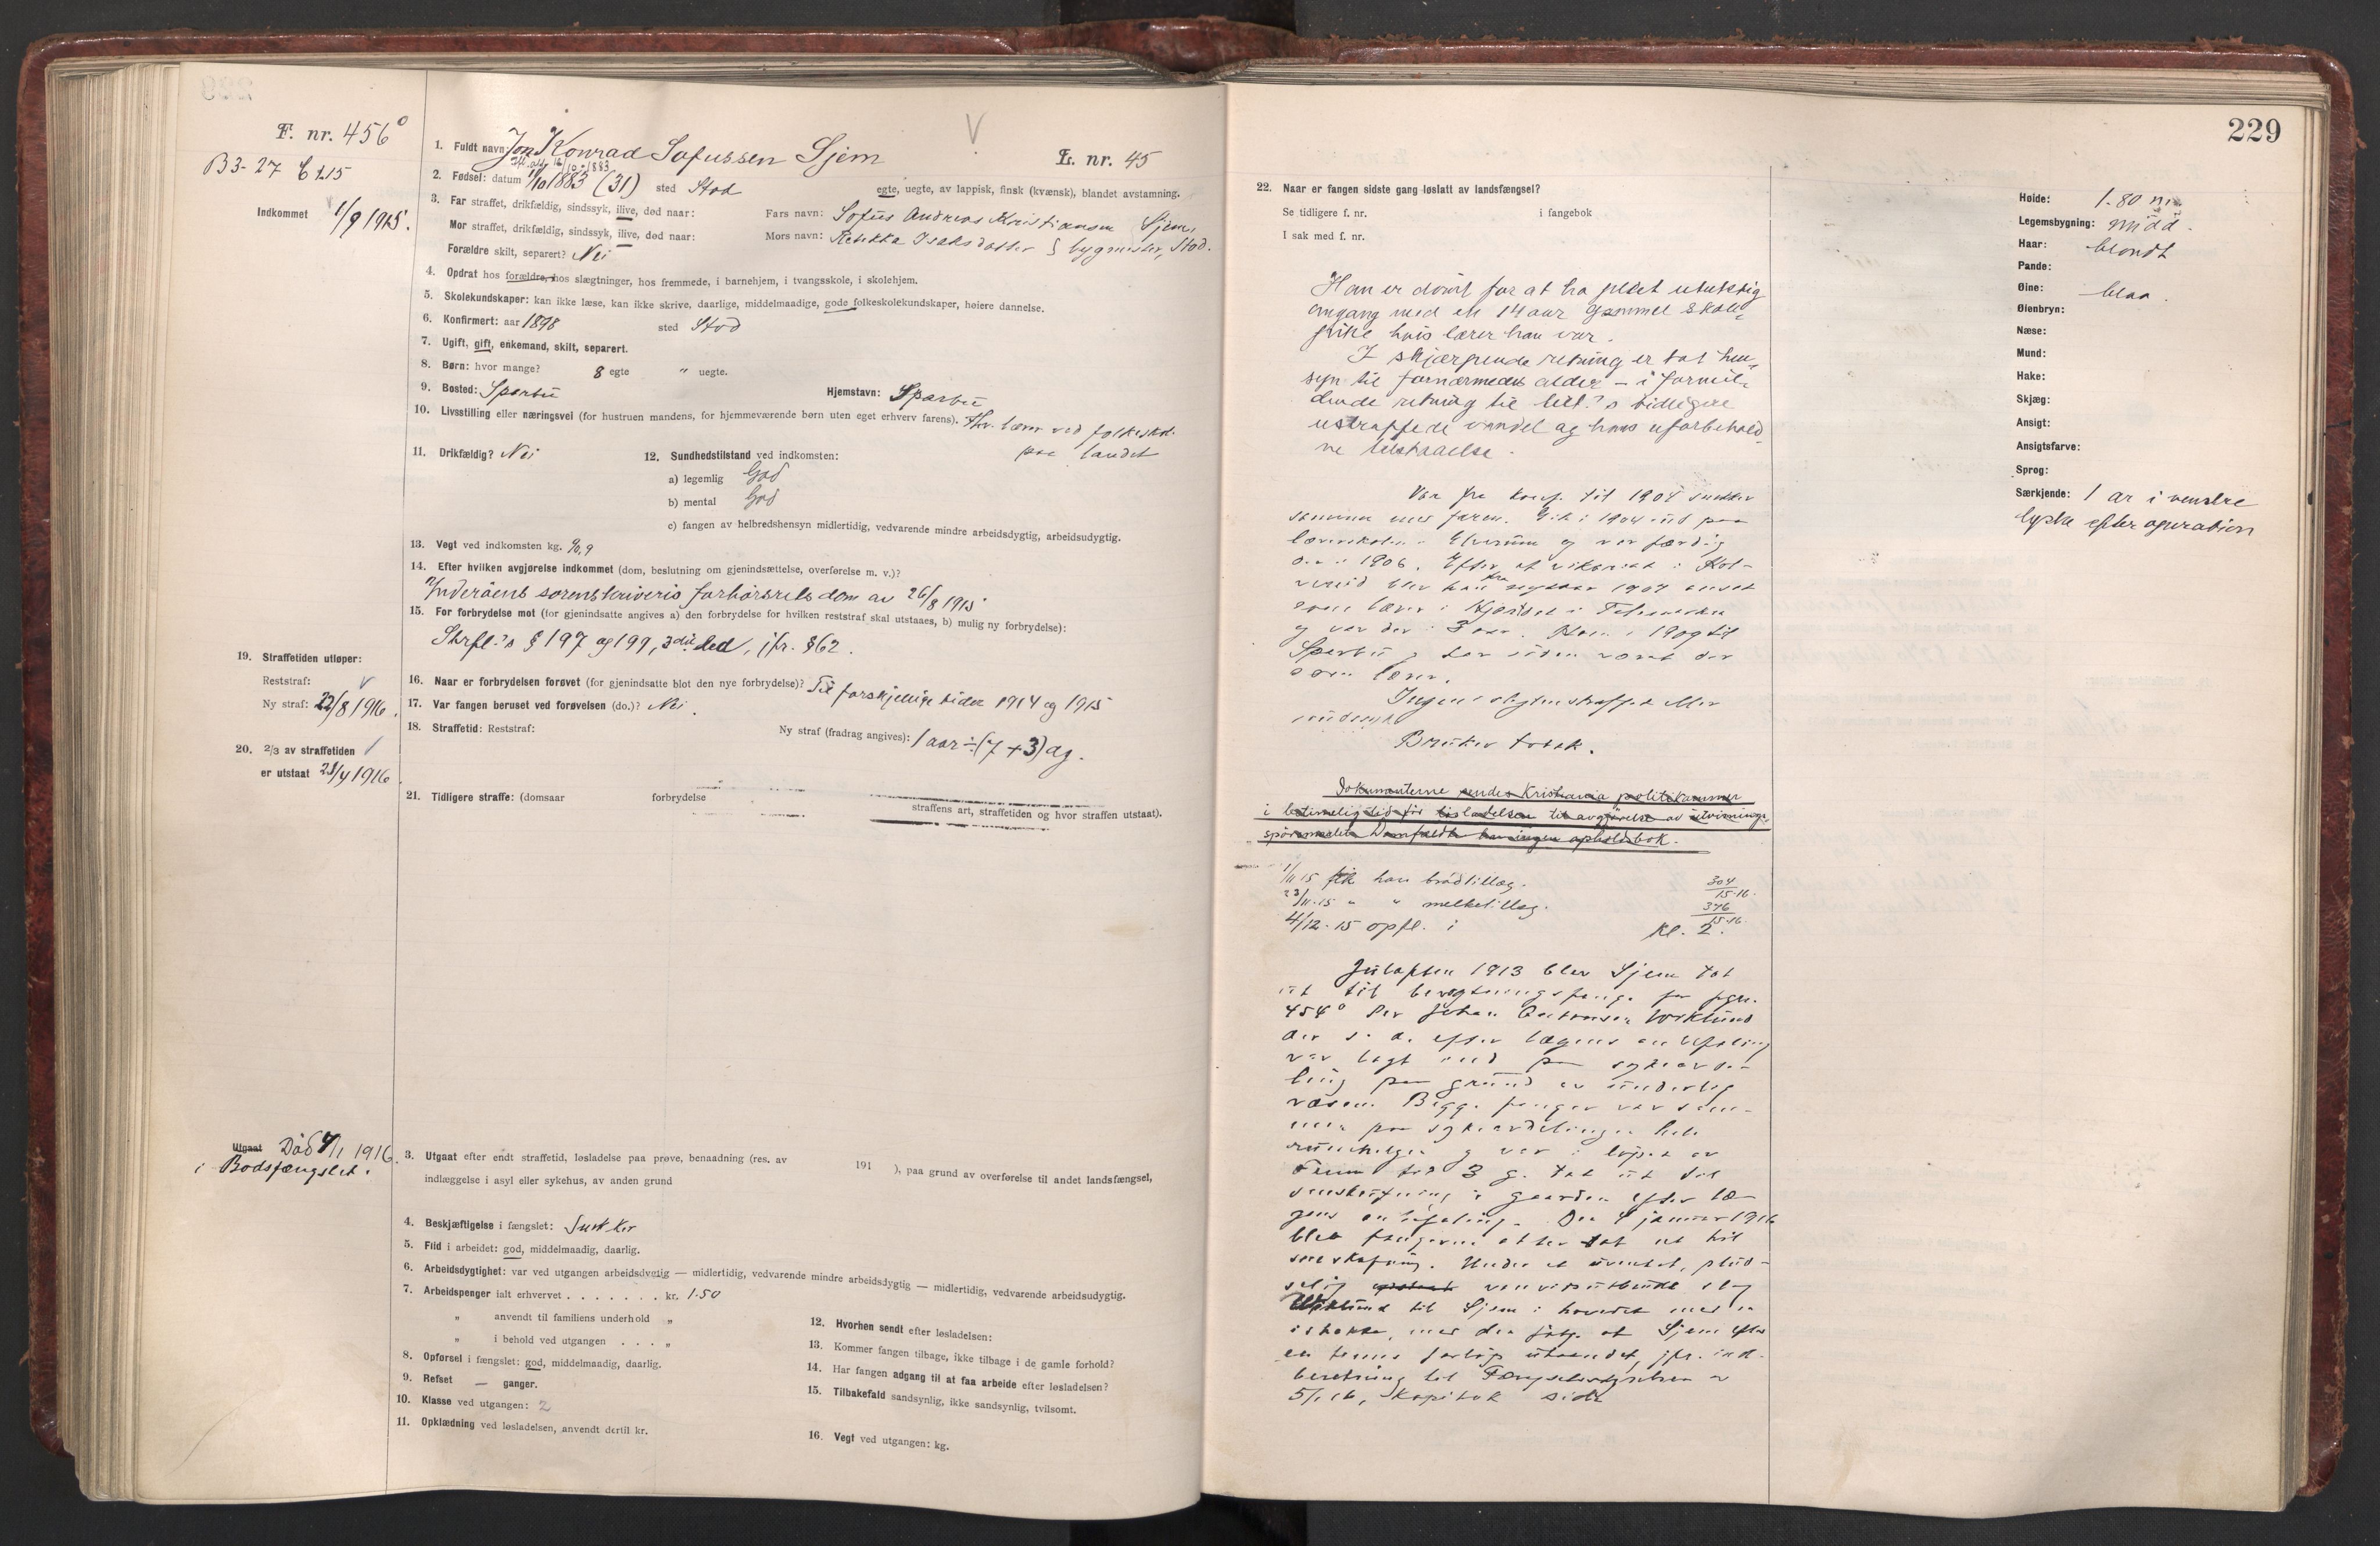 F. nr. 456°
B3-27 6215
Indkommet 1/9 1915.
1. Fuldt navn: Jon Konrad Sofussen Sjem
L. nr. 45
2. Fødsel: datum 1/10 1883 (31) sted Stod
egte, uegte, av lappisk, finsk (kvænsk), blandet avstamning.
3. Far straffet, drikfældig, sindssyk, ilive, død naar: Fars navn: Sofus Andreas Kristiansen Sjem,
Mor straffet, drikfældig, sindssyk, ilive, død naar: Mors navn: Rebekka Isaksdatter } bygmester, Stod.
Forældre skilt, separert? Nei
4. Opdrat hos forældre, hos slægtninger, hos fremmede, i barnehjem, i tvangsskole, i skolehjem.
5. Skolekundskaper: kan ikke læse, kan ikke skrive, daarlige, middelmaadige, gode folkeskolekundskaper, høiere dannelse.
6. Konfirmert: aar 1898 sted Stod
7. Ugift, gift, enkemand, skilt, separert.
8. Børn: hvor mange? 8 egte " uegte.
9. Bosted: Sparbu Hjemstavn: Sparbu
10. Livsstilling eller næringsvei (for hustruen mandens, for hjemmeværende børn uten eget erhverv farens). fhv. lærer ved folkeskol.
paa landet
11. Drikfældig? Nei
12. Sundhedstilstand ved indkomsten:
a) legemlig God
b) mental God
c) fangen av helbredshensyn midlertidig, vedvarende mindre arbeidsdygtig, arbeidsudygtig.
13. Vegt ved indkomsten kg. 90,9
14. Efter hvilken avgjørelse indkommet (dom, beslutning om gjenindsættelse, overførelse m. v.)?
Inderøens sorenskriveris forhørsrets dom av 26/8 1915
15. For forbrydelse mot (for gjenindsatte angives a) den forbrydelse for hvilken reststraf skal utstaaes, b) mulig ny forbrydelse):
Strfl.'s § 197 og 199, 3die led, jfr. § 62.
16. Naar er forbrydelsen forøvet (for gjenindsatte blot den nye forbrydelse)? Til forskjellige tider 1914 og 1915
17. Var fangen beruset ved forøvelsen (do.)? Nei.
18. Straffetid: Reststraf: Ny straf (fradrag angives): 1 aar ÷ (7+3) dg.
19. Straffetiden utløper:
Reststraf:
Ny straf: 22/8 1916.
20. 2/3 av straffetiden
er utstaat 23/4 1916.
21. Tidligere straffe: (domsaar forbrydelse straffens art, straffetiden og hvor straffen utstaat).
Utgaat Død 4/1 1916
i Bodsfængslet.
3. Utgaat efter endt straffetid, løsladelse paa prøve, benaadning (res. av 191 ), paa grund av overførelse til andet landsfængsel,
indlæggelse i asyl eller sykehus, av anden grund
4. Beskjæftigelse i fængslet: Snekker
5. Flid i arbeidet: god, middelmaadig, daarlig.
6. Arbeidsdygtighet: var ved utgangen arbeidsdygtig — midlertidig, vedvarende mindre arbeidsdygtig — midlertidig, vedvarende arbeidsudygtig.
7. Arbeidspenger ialt erhvervet . . . . . . . kr. 1.50
" anvendt til familiens underhold "
" i behold ved utgangen . . . "
8. Opførsel i fængslet: god, middelmaadig, daarlig.
9. Refset — ganger.
10. Klasse ved utgangen: 2
11. Opklædning ved løsladelsen, anvendt dertil kr.
12. Hvorhen sendt efter løsladelsen:
13. Kommer fangen tilbage, ikke tilbage i de gamle forhold?
14. Har fangen adgang til at faa arbeide efter løsladelsen?
15. Tilbakefald sandsynlig, ikke sandsynlig, tvilsomt.
16. Vegt ved utgangen: kg.
229
22. Naar er fangen sidste gang løslatt av landsfængsel?
Se tidligere f. nr. i fangebok
I sak med f. nr.
Han er dømt for at ha pleiet utuktig
omgang med en 14 aar gammel skole-
pike hvis lærer han var.
I skjærpende retning er tat hen-
syn til fornærmedes alder – i formil-
dende retning til tilt.'s tidligere
ustraffede vandel og hans uforbehold-
ne tilstaaelse.
Var fra konf. til 1904 snekker
sammen med faren. Gik i 1904 ind paa
lærerskolen i Elverum og var færdig
der i 1906. Efter et vikariat i Kol-
vereid blev han fra nytaar 1907 ansat
som lærer i Hjartdal i Telemarken
og var der i 3 aar. Kom i 1909 til
Sparbu og har siden været der
som lærer.
Ingen i slegten straffet eller
sindssyk
Bruker tobak.
Dokumenterne sendes Kristiania politikammer
i betimelig tid før løsladelsen til avgjørelse av utvisnings-
spørsmaalet. Domfældte har ingen opholdsbok.
1/11 15 fik han brødtillæg. 304/15-16.
23/11-15 " " melketillæg. 376/15-16
4/12-15 opfl. i kl. 2.
Julaften 1913 blev Sjem tat
ut til bevogtningsfange for fgn.
454° Per Johan Antonsen Wiklund
der s. d. efter lægens anbefaling
var lagt ind paa sykeavde-
ling paa grund av underlig
væsen. Begge fanger var sam-
men paa sykeavdelingen hele
romhelgen og var i løpet av
denne tid 3 g. tat ut til
sneskuffning i gaarden efter læ-
gens anbefaling. Den 4 januar 1916
blev fangerne atter tat ut til
sneskufning. Under et uventet, plud-
selig vanvidsutbrudd slog
Wiklund til Sjem i hovedet med en
ishakke, med den følge at Sjem efter
en times forløp utaandet, jfr. ind-
beretning til Fængselsstyrelsen av
5/1 16, kopibok side
Høide: 1.80 m.
Legemsbygning: midd.
Haar: blondt
Pande:
Øine: blaa.
Øienbryn:
Næse:
Mund:
Hake:
Skjæg:
Ansigt:
Ansigtsfarve:
Sprog:
Særkjende: 1 ar i venstre
lyske efter operation